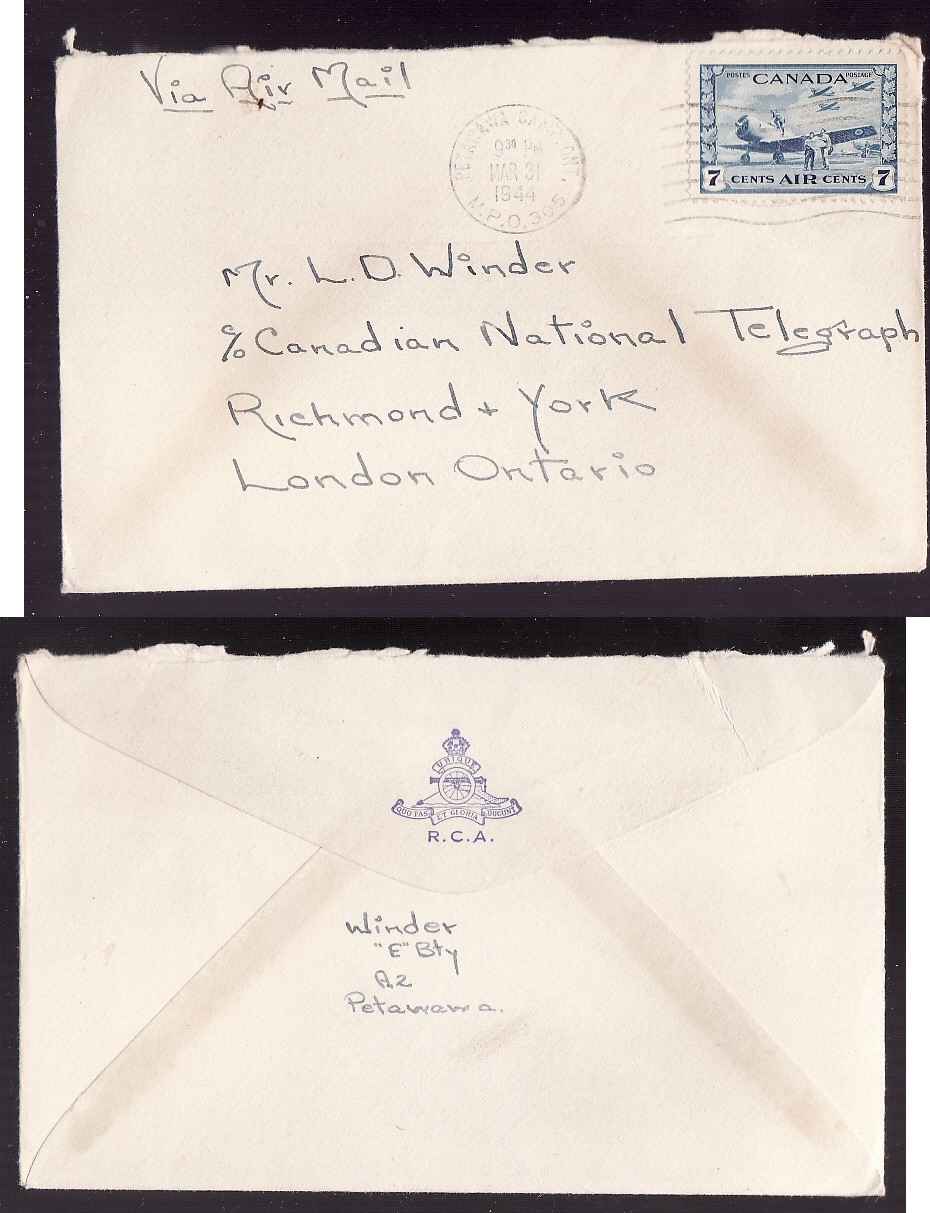 Via Air Mail
POSTES CANADA POSTAGE
7 CENTS AIR CENTS 7
PETAWAWA CAMP, ONT.
9 30 PM
MAR 31
1944
M.P.O. 305
Mr. L. D. Winder
c/o Canadian National Telegraph
Richmond + York
London Ontario
UBIQUE
QUO FAS ET GLORIA DUCUNT
R.C.A.
Winder
"E" Bty
A2
Petawawa.